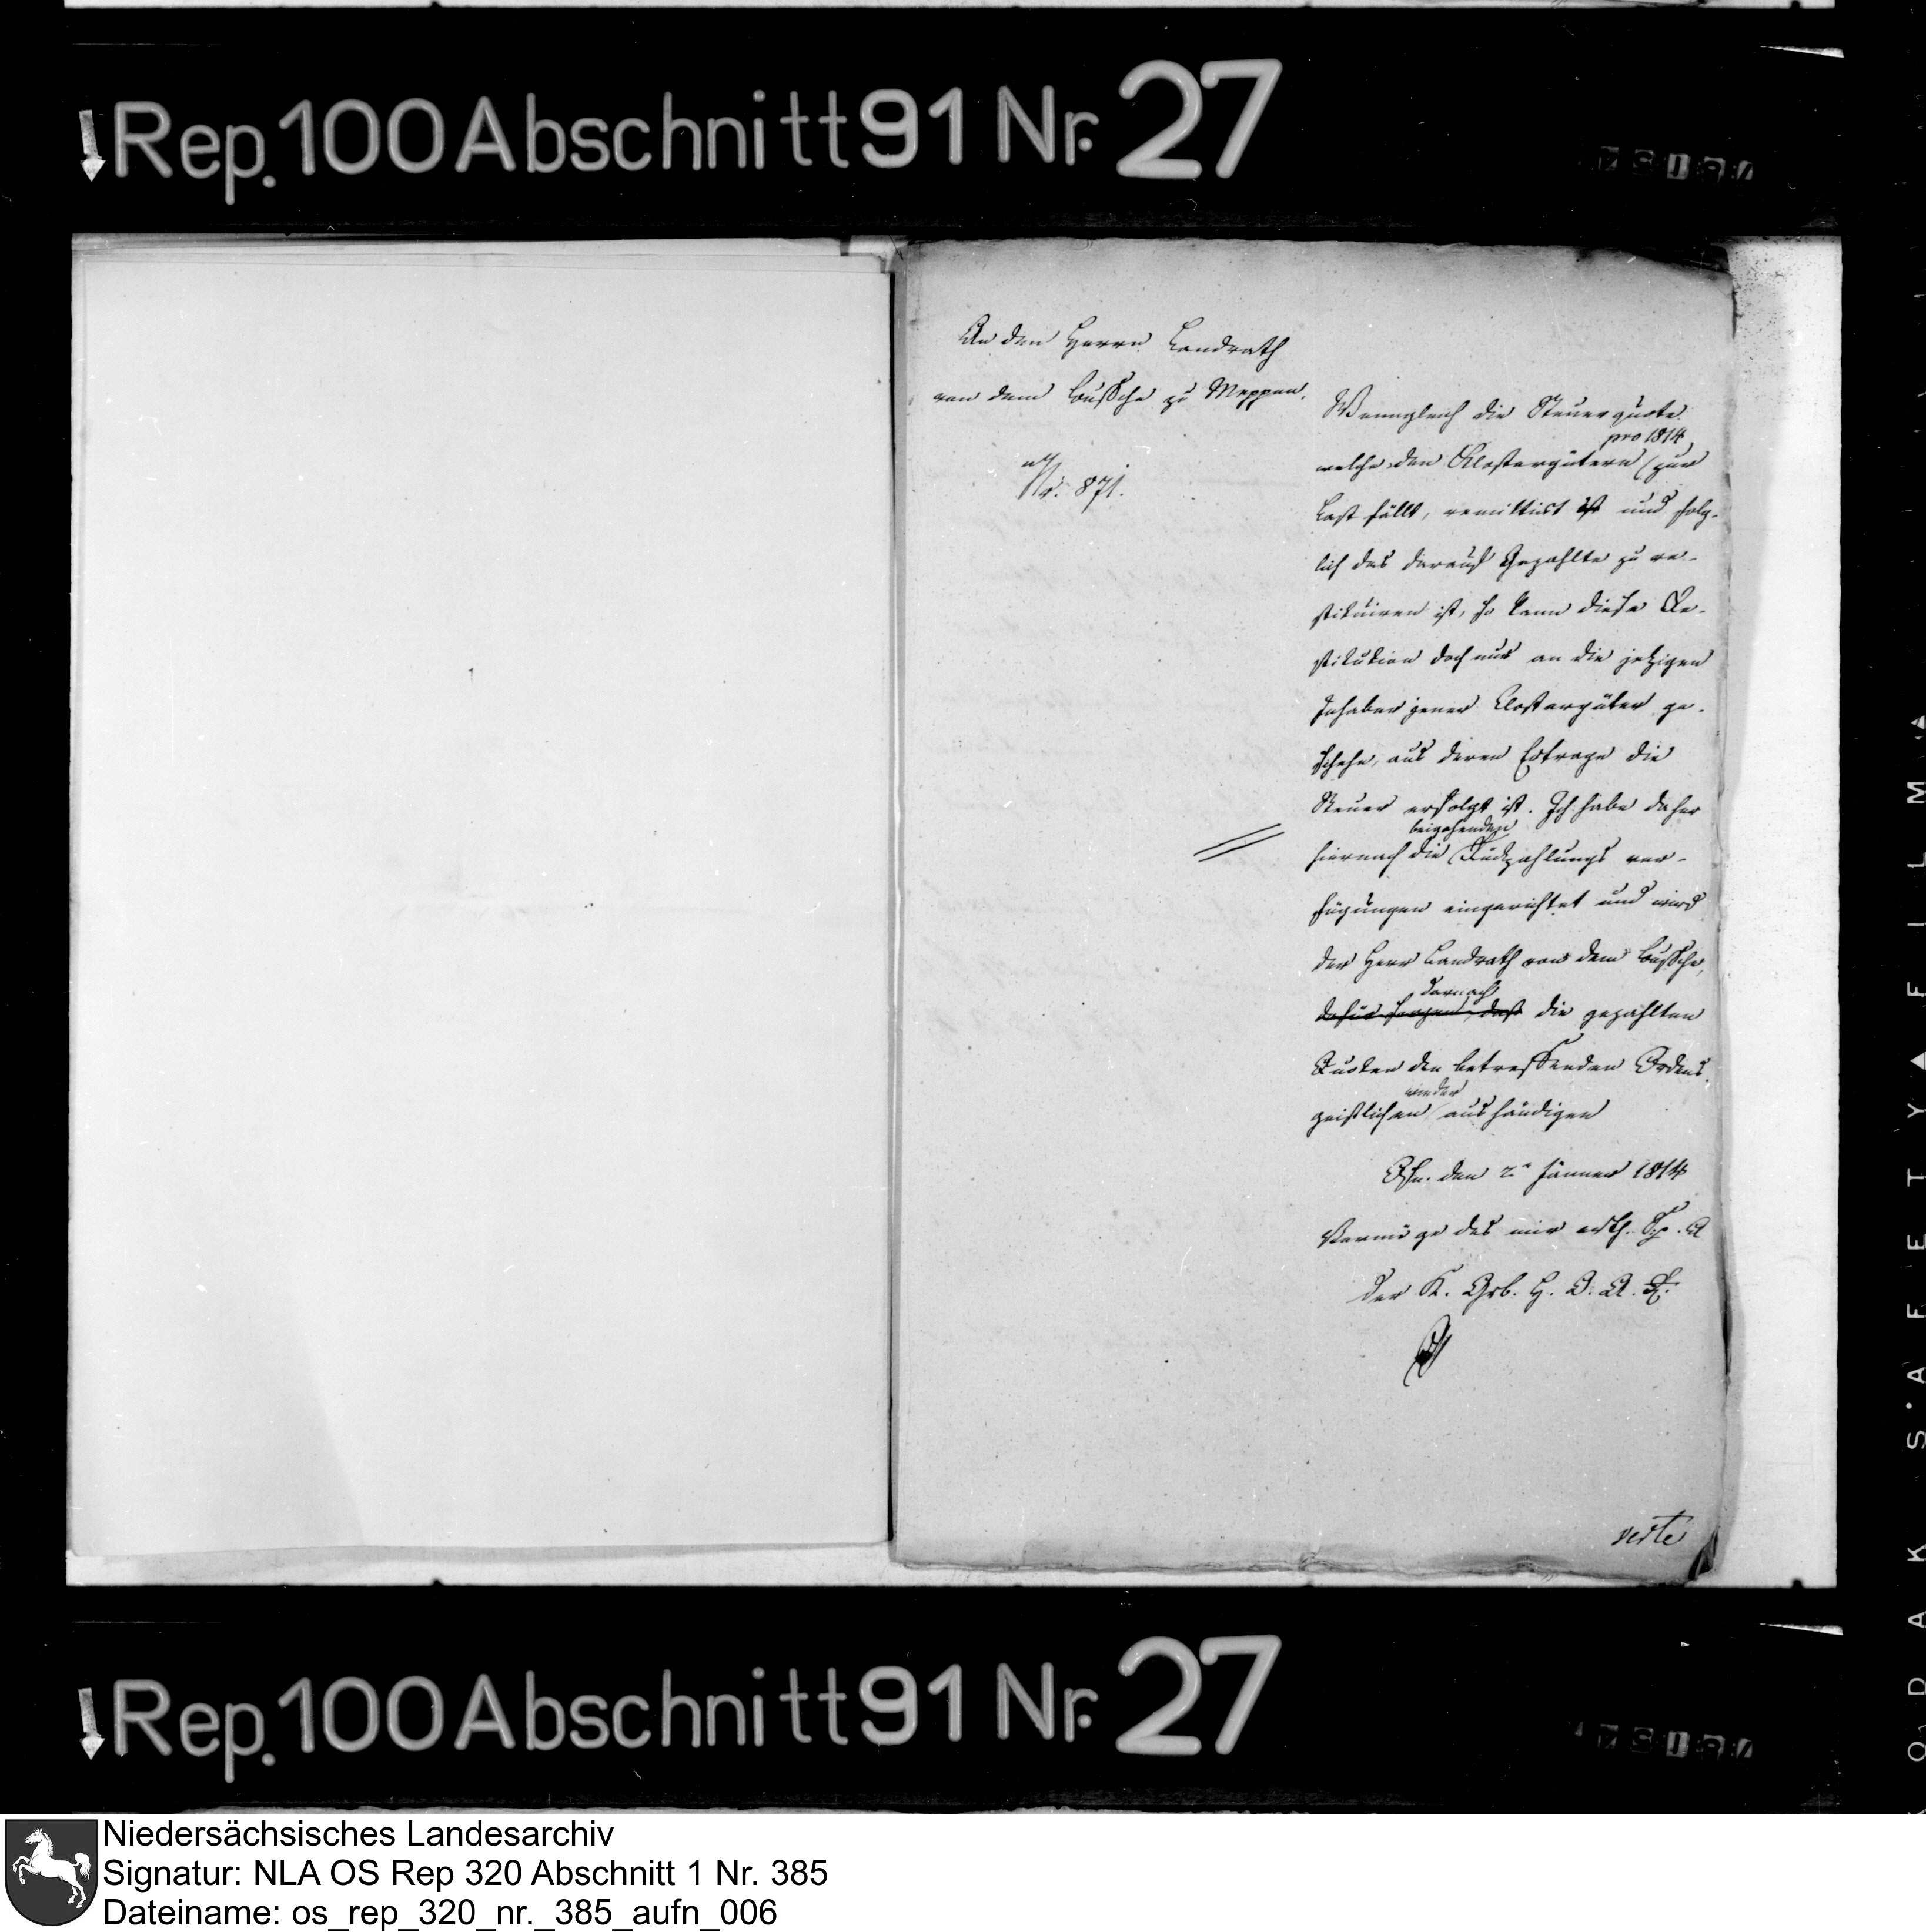 Rep. 100 Abschnitt 91 Nr. 27
An den Herrn Landrath
von dem Bussche zu Meppen.
No. 871.
Wenngleich die Steuerquote
pro 1814
welche den Klostergütern zur
Last fällt, remittirt ist und folg-
lich das darauf Gezahlte zu re-
stituiren ist, so kann diese Re-
stitution doch nur an die jetzigen
Inhaber jener Klostergüter ge-
schehe, aus deren Ertrage die
Steuer erfolgt ist. Ich habe daher
beigehenden
hiernach die Rückzahlungs ver-
fügungen eingerichtet und wird
der Herr Landrath von dem Bussche,
darnach
dafür sorgen, daß die gezahlten
Quoten den betreffenden Ordens
wieder
geistlichen aushändigen
Osn. den 2n Jänner 1814
Vermöge des mir erth.
der K. Grb. H.
verte
Rep. 100 Abschnitt 91 Nr. 27
KODAK SAFETY FILM
Niedersächsisches Landesarchiv
Signatur: NLA OS Rep 320 Abschnitt 1 Nr. 385
Dateiname: os_rep_320_nr._385_aufn_006